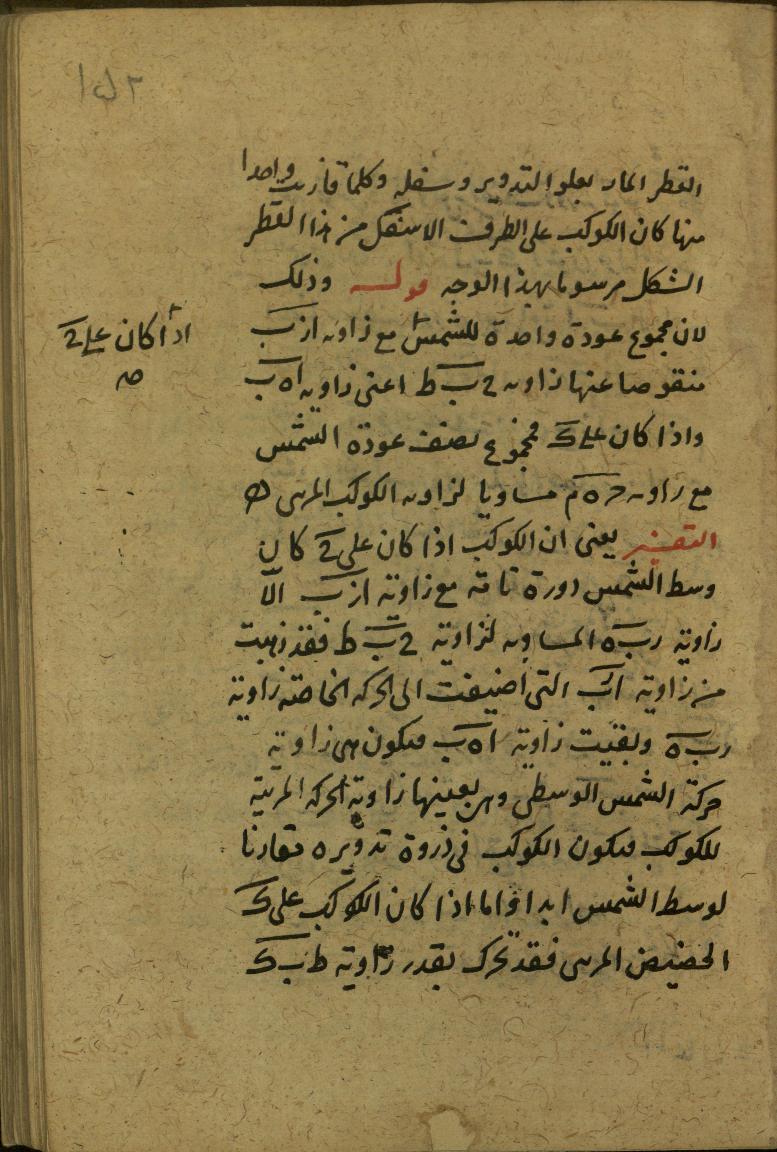 القطر المار بعلو التدوير وسفله وكلما قارنت واحدا
منها كان الكوكب على الطرف الاسفل من هذا القطر
الشكل مرسوما بهذا الوجه قوله وذلك
لان مجموع عودة واحدة للشمس مع زاوية ا ز ب
اذا كان على ح
صه
منقوصا عنها زاوية ح ب ط اعنى زاوية ا ه ب
واذا كان على ك فمجموع نصف عودة الشمس
مع زاوية ح ه م مساويا لزاوية الكوكب المرئى
التفسير يعنى ان الكوكب اذا كان على ح كان
وسط الشمس دورة تامة مع زاوية ا ز ب الا
زاوية ر ب ه المساوية لزاوية ح ب ط فقد ذهبت
من زاوية ا ز ب التى اضيفت الى الحركه الخاصة زاوية
ر ب ه وبقيت زاوية ا ه ب فيكون هى زاوية
حركة الشمس الوسطى وهى بعينها زاوية الحركة المرئية
للكوكب فيكون الكوكب فى ذروة تدويره مقارنا
لوسط الشمس ابدا واما اذا كان الكوكب على ك
الحضيض المرئى فقد تحرك بقدر زاوية ط ب ك